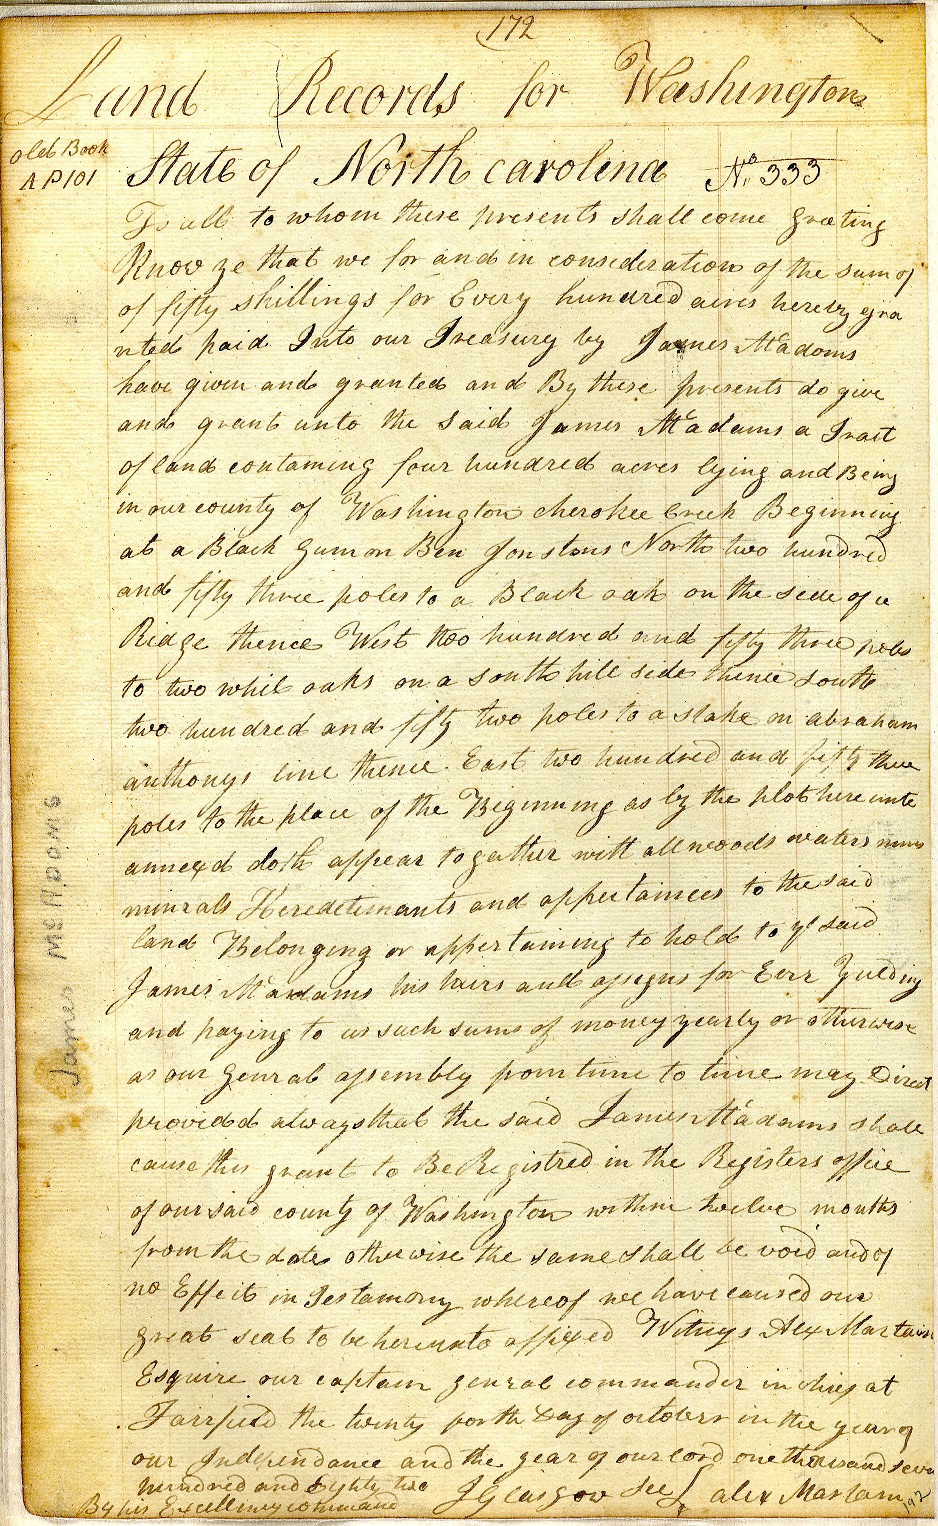 172
Land Records for Washington
old Book
A P 101
State of North carolina No 333
To all to whom these presents shall come Greeting
Know ye that we for and in consideration of the sum of
of fifty shillings for Every hundred acres hereby gra
nted paid Into our Treasury by James McAdams
have given and granted and By these presents do give
and grant unto the said James McAdams a Tract
of land containing four hundred acres lying and Being
in our county of Washington cherokee Creek Beginning
at a Black Gum on Ben Jonstons North two hundred
and fifty three poles to a Black oak on the side of a
Ridge thence West two hundred and fifty three poles
to two whit oaks on a south hill side thence south
two hundred and fifty two poles to a stake on abraham
anthonys line thence East two hundred and fifty three
poles to the place of the Beginning as by the plot hereunto
annexd doth appear together with all woods waters mines
minrals Heredetimants and appertainces to the said
land Belonging or appertaining to hold to ye said
James McAdams his hairs and assigns for Evir Yulding
and paying to us such sums of money yearly or otherwise
as our genral assembly from time to time may Direct
provided always that the said James McAdams shall
cause this grant to Be Registred in the Registers office
of our said county of Washington within twelve months
from the date otherwise the same shall be void and of
no Effeit in Testamony whereof we have caused our
great seal to be hereunto affixed Witness Alex Martain
Esquire our captain genral commander in chief at
Fairfield the twenty forth Day of october in the year of
our Independance and the year of our lord one thousand seven
hundred and Eighty two
By his Excellency command J Glasgow Sec alex Martain
James McAdams